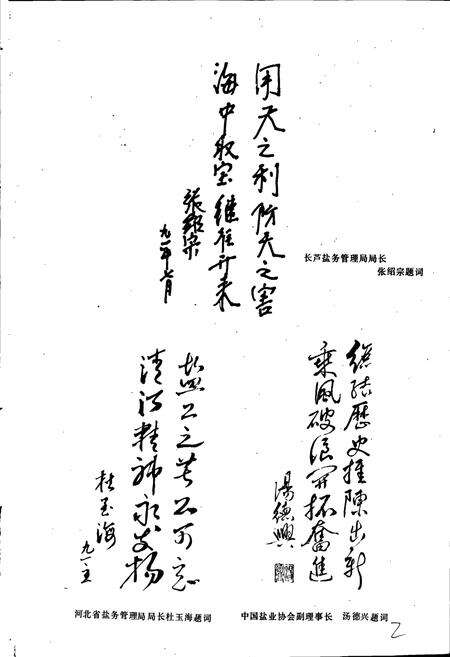 用天之利防天之害
海中取宝继往开来
張紹宗
九一年七月
长芦盐务管理局局长
张绍宗题词
总结歷史推陳出新
乘風破浪开拓奮進
湯德興
盐工之苦不可忘
清河精神永发扬
杜玉海
九一.
河北省盐务管理局局长杜玉海题词
中国盐业协会副理事长 汤德兴题词
2